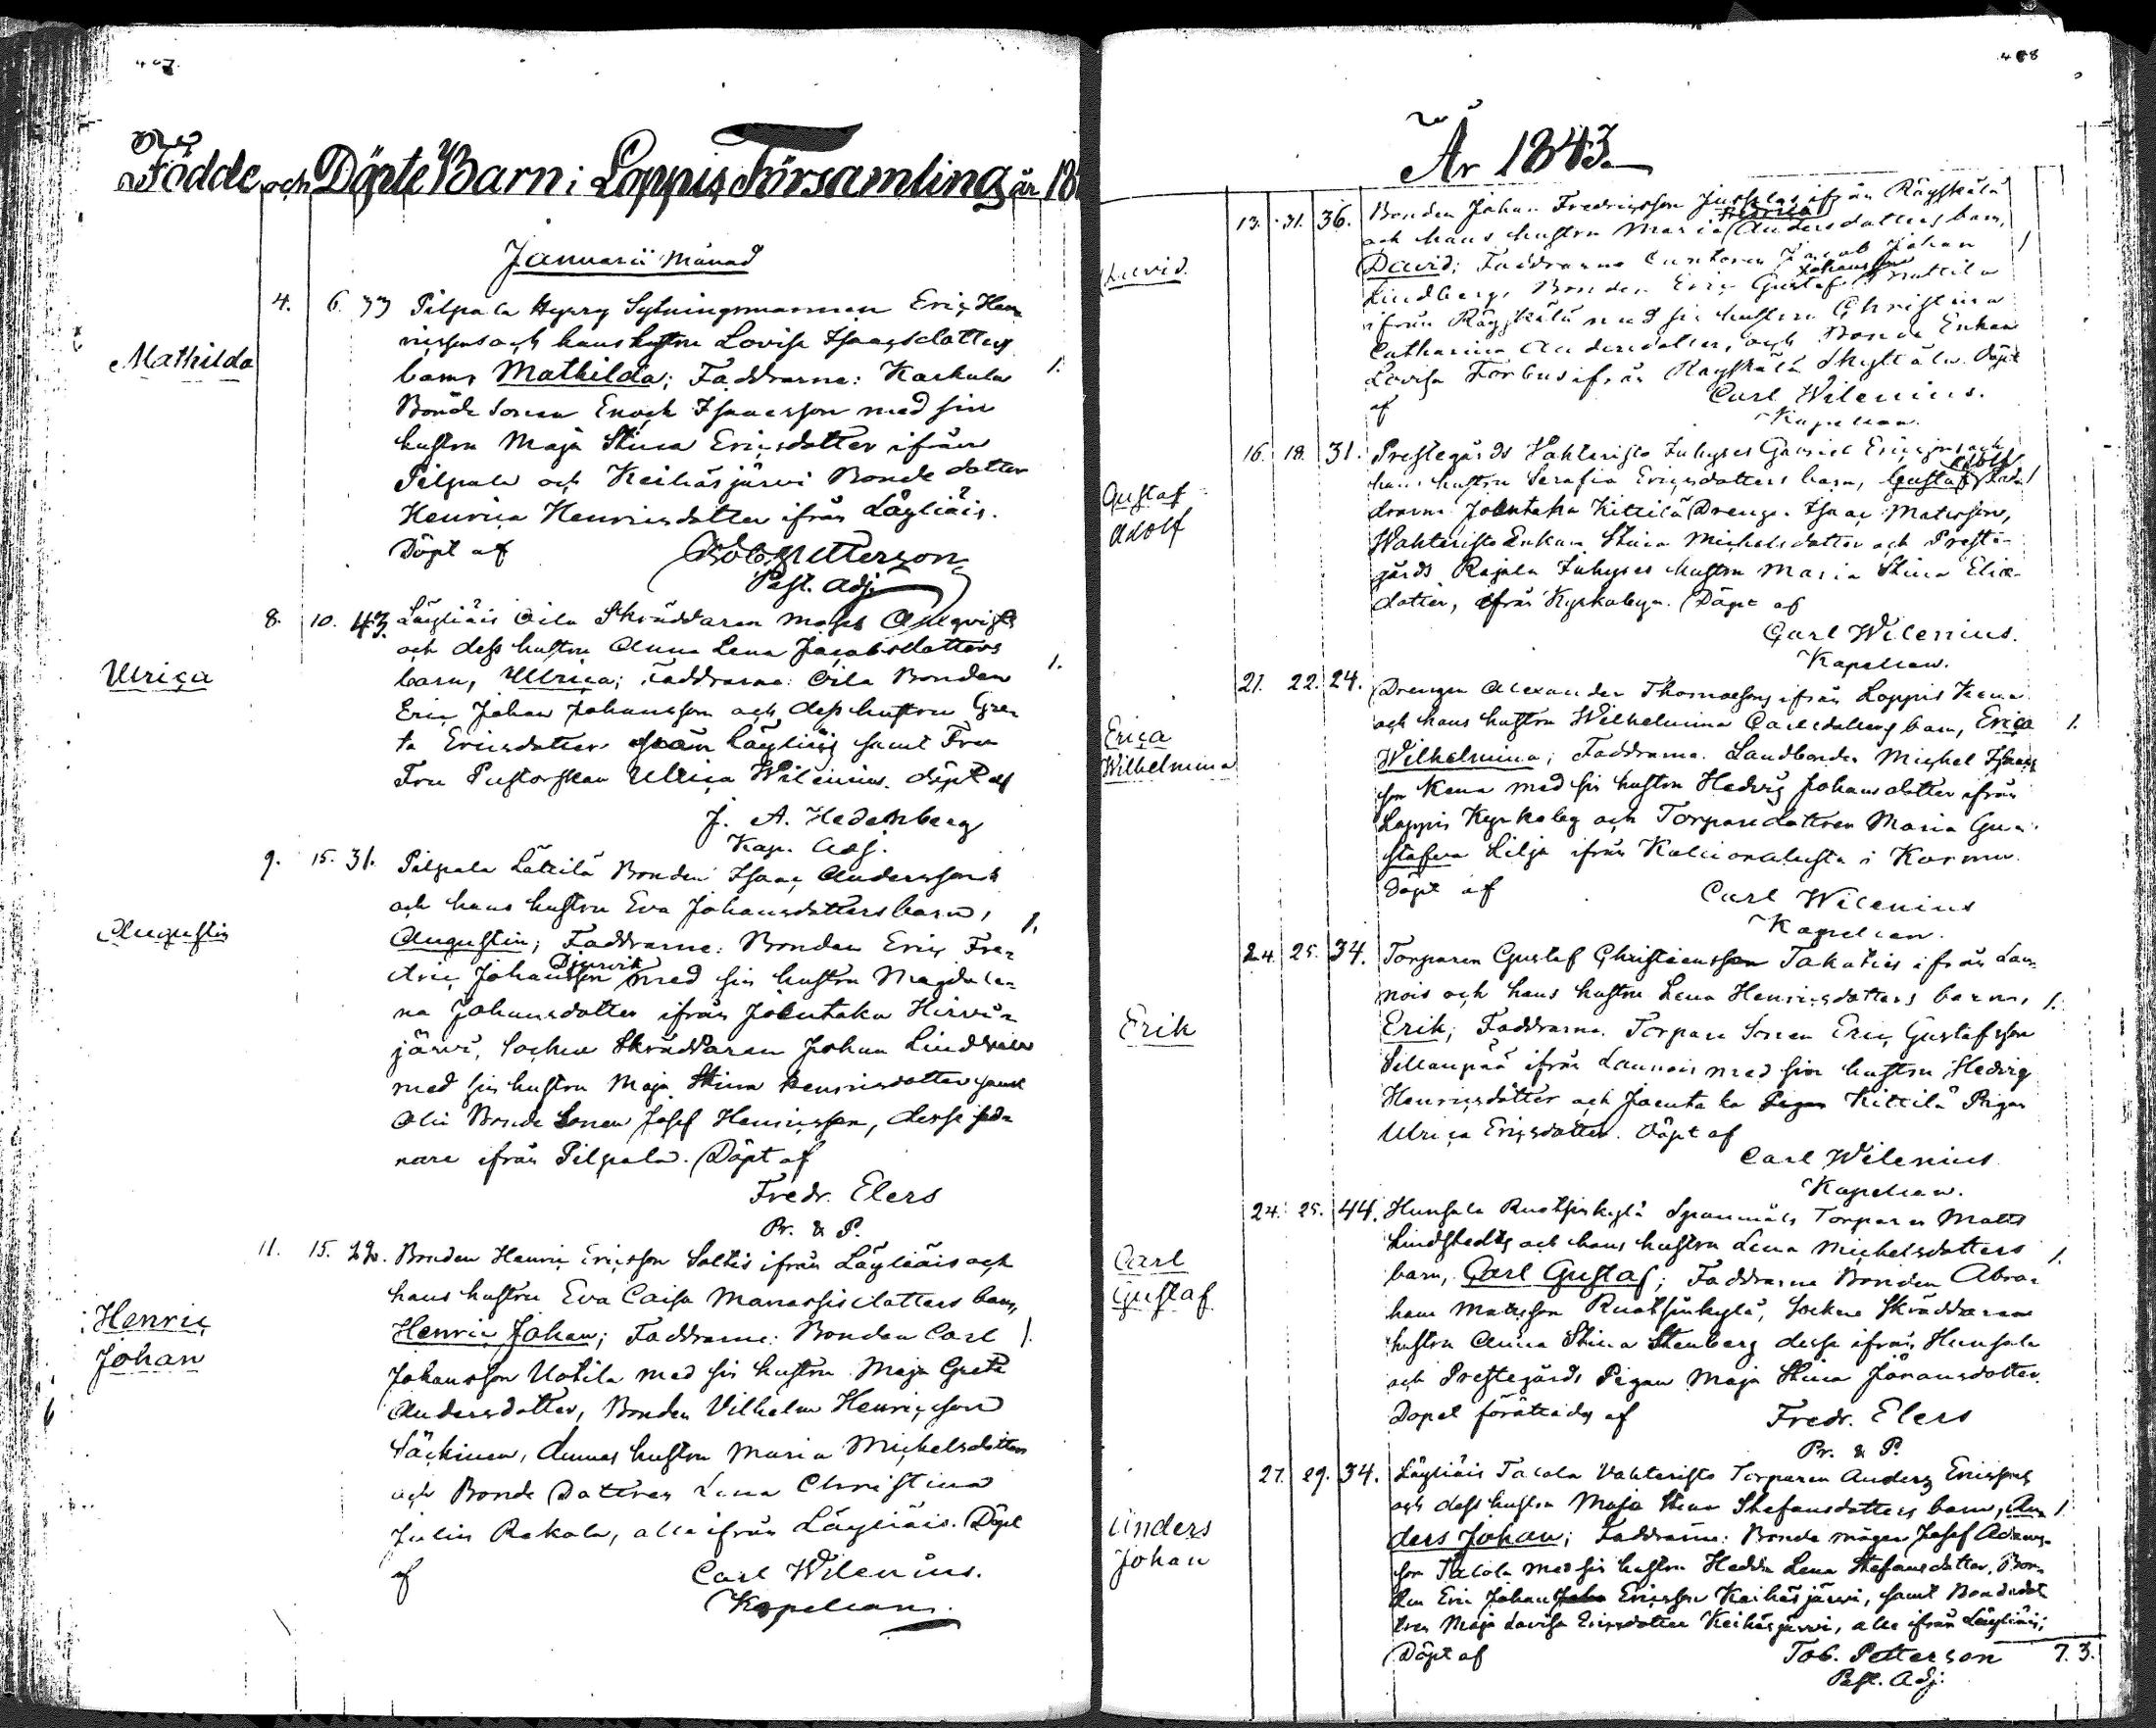 407.
Födde och Döpte Barn i Loppis Församling år 18
Januarii Månad
Mathilda
4. 6. 33 Pilpala Hyrry Sytningsmannen Eriç Hen-
riçssons och hans hustru Lovisa Isaacsdotters
barn, Mathilda; Faddrarne: Karkula 1.
Bonde Sonen Enoch Isaacsson med sin
hustru Maja Stina Ericsdotter ifrån
Pilpala och Keihäsjärvi Bonde dotter
Henrica Henricsdotter ifrån Läyliäis.
Döpt af Tob. Petterson
Past. Adj.
Ulriça
8. 10. 43. Läyliäis Oila Skräddaren Moses Almqvists
och dess hustru Anna Lena Jacobsdotters
barn, Ulriça; Faddrarne: Oila Bonden 1.
Eric Johan Johansson och dess hustru Gre-
ta Ericsdotter ifrån Läyliäis samt Fru
Fru Pastorskan Ulrica Wilenius. döpt af
J. A. Hedenberg
Kap. Adj.
Augustin
9. 15. 31. Pilpala Lättilä Bonden Isaac Anderssons
och hans hustru Eva Johansdotters barn, 1.
Augustin; Faddrarne: Bonden Eric Fre-
dric Johansson Djurvik med sin hustru Magdale-
na Johansdotter ifrån Joentaka Hirvi-
järvi, Sockne Skräddaren Johan Lindwall
med sin hustru Maja Stina Henricsdotter samt
Oli Bonde Sonen Josef Henricsson, desse sed-
nare ifrån Pilpala. Döpt af
Fredr. Elers
Pr. & P.
Henriç
Johan
11. 15. 22. Bonden Henric Ericsson Soltis ifrån Läyliäis och
hans hustru Eva Caisa Manassisdotters barn,
Henric Johan; Faddrarne: Bonden Carl 1.
Johansson Uotila med sin hustru Maja Greta
Andersdotter, Bonden Vilhelm Henricsson
Säckinen, dennes hustru Maria Michelsdotter
och Bonde Dottren Lena Christina
Julin Rekola, alla ifrån Läyliäis. Döpt
af Carl Wilenius.
Kapellan.
408
År 1843.
David.
13. 31. 36. Bonden Johan Fredricsson Jussilas ifrån Räyskälä
och hans hustru Maria Fredrica Andersdotters barn,
David; Faddrarne Cantoren Jacob Johan 1
Lindberg, Bonden Eric Gustaf Johansson Mattila
ifrån Räyskälä med sin hustru Christina
Catharina Andersdotter, och Bonde Enkan
Lovisa Forbus ifrån Räyskälä Skyttälä. Döpt
af Carl Wilenius.
Kapellan.
Gustaf
Adolf
16. 18. 31. Prestegårds Vahteristo Inhyses Gabriel Ericssons och
hans hustru Serafia Ericsdotters barn, Gustaf Adolf; Fad- 1
drarne Joentaka Kittilä Drengen Isaac Matsson,
Wahteristo Enkan Stina Michelsdotter och Preste-
gårds Rajala Inhyses hustru Maria Stina Elias-
dotter, ifrån Kyrkobyn. Döpt af
Carl Wilenius.
Kapellan.
Eriça
Wilhelmina
21. 22. 24. Drengen Alexander Thomassons ifrån Loppis Kena
och hans hustru Wilhelmina Carlsdotters barn, Eriça 1.
Wilhelmina; Faddrarne. Landbonden Michel Isaacs-
son Kena med sin hustru Hedvig Johansdotter ifrån
Loppis Kyrkoby och Torparedottren Maria Gu-
stafva Lilja ifrån Kalliomalusta i Kormu.
Döpt af Carl Wilenius
Kapellan.
Erik
24. 25. 34. Torparen Gustaf Christiansson Takaties ifrån Lau-
nois och hans hustru Lena Henricsdotters barn, 1.
Erik; Faddrarne. Torpare Sonen Eric Gustafsson
Sillanpää ifrån Launois med sin hustru Hedvig
Henricsdotter och Joentaka Kittilä Pigan
Ulrica Ericsdotter. Döpt af
Carl Wilenius
Kapellan.
Carl
Gustaf
24. 25. 44. Hunsala Ruotsinkylä Spannmåls Torparen Matts
Lindstedts och hans hustru Lena Michelsdotters
barn, Carl Gustaf; Faddrarne Bonden Abra- 1.
ham Matsson Ruotsinkylä, Sockne Skräddaren
hustru Anna Stina Stenberg desse ifrån Hunsala
och Prestegårds Pigan Maja Stina Jöransdotter.
Dopet förättades af Fredr. Elers
Pr. & P.
Anders
Johan
27. 29. 34. Läyliäis Tacola Vahteristo Torparen Anders Ericssons
och dess hustru Maja Stina Stefansdotters barn, An- 1
ders Johan; Faddrarne: Bonde mågen Josef Adams-
son Tacola med sin hustru Hedda Lena Stefansdotter, Bon-
den Eric Johan Ericsson Keihäsjärvi, samt Bondedot-
tren Maja Lovisa Ericsdotter Keihäsjärvi, alla ifrån Läyliäis;
Döpt af Tob. Petterson 7. 3.
Past. Adj.